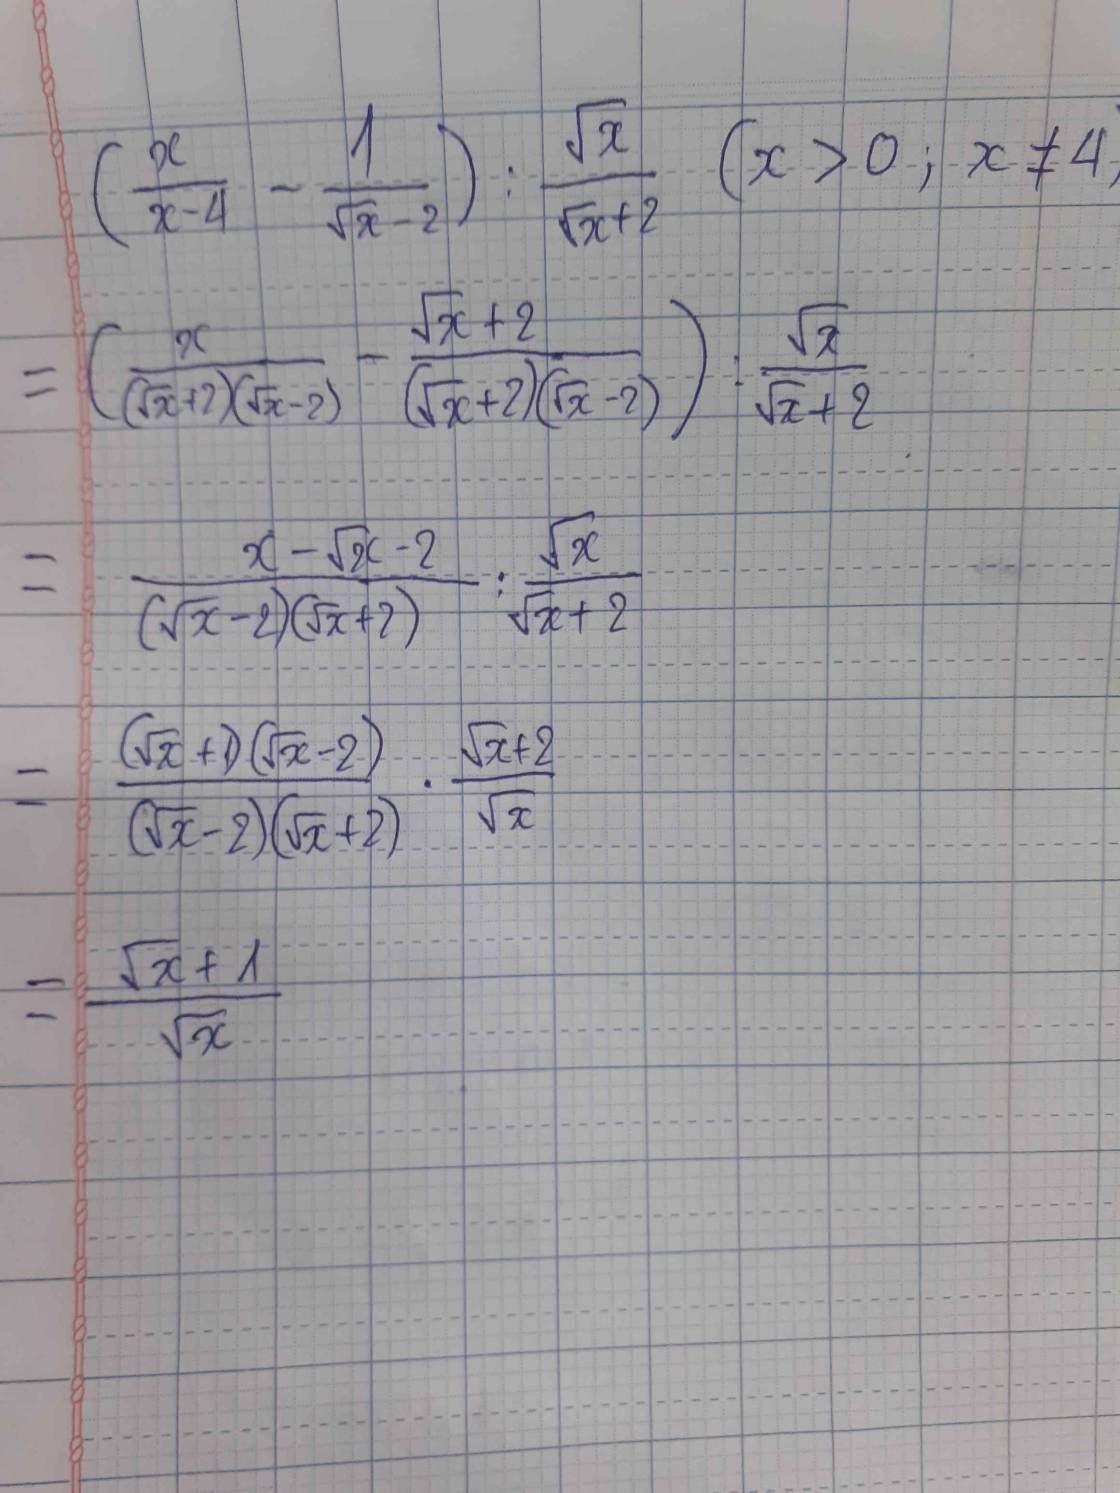 (x/(x-4) - 1/(√x-2)) : √x/(√x+2) (x > 0; x ≠ 4)
= (x/((√x+2)(√x-2)) - (√x+2)/((√x+2)(√x-2))) : √x/(√x+2)
= (x-√x-2)/((√x-2)(√x+2)) : √x/(√x+2)
= ((√x+1)(√x-2))/((√x-2)(√x+2)) . (√x+2)/√x
= (√x+1)/√x